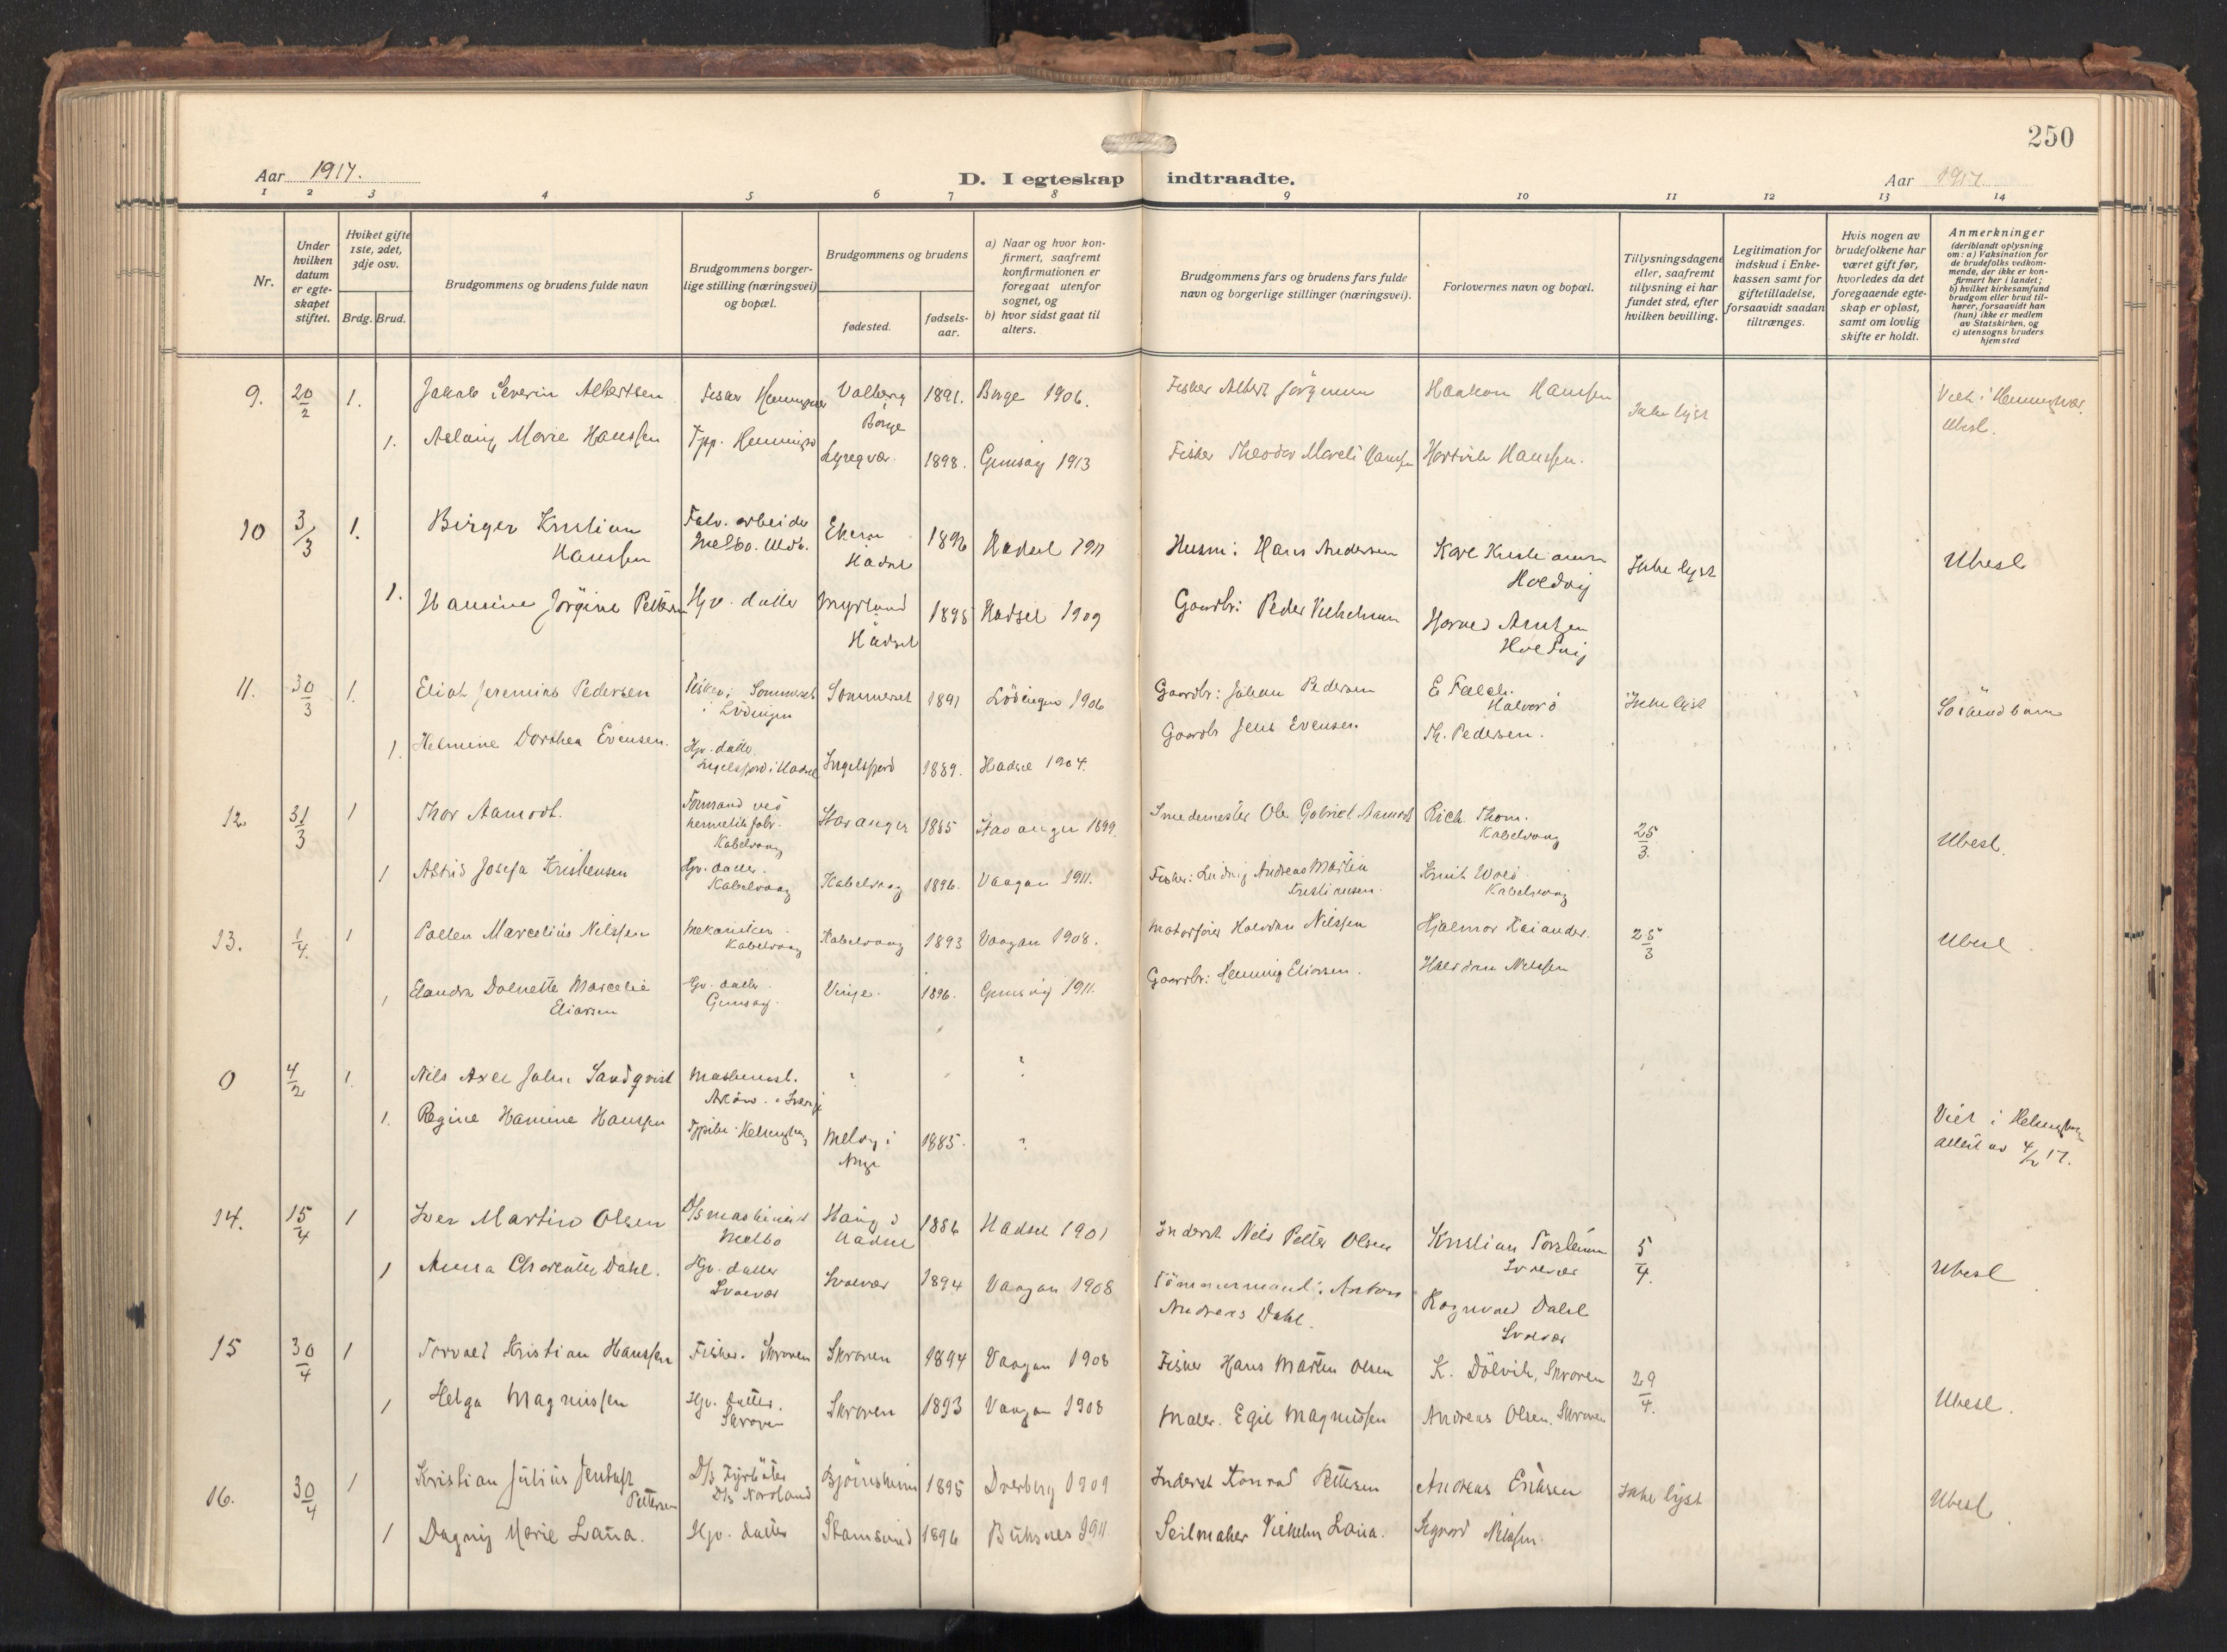 250
Aar 1917.
D. I egteskap indtraadte.
Aar 1917
1 2 3 4 5 6 7 8 9 10 11 12 13 14
Nr.
Under hvilken datum er egteskapet stiftet.
Hviket gifte 1ste, 2det, 3dje osv.
Brdg. Brud.
Brudgommens og brudens fulde navn
Brudgommens borgerlige stilling (næringsvei) og bopæl.
Brudgommens og brudens
fødested.
fødselsaar.
a) Naar og hvor konfirmert, saafremt konfirmationen er foregaat utenfor sognet, og
b) hvor sidst gaat til alters.
Brudgommens fars og brudens fars fulde navn og borgerlige stillinger (næringsvei).
Forlovernes navn og bopæl.
Tillysningsdagene eller, saafremt tillysning ei har fundet sted, efter hvilken bevilling.
Legitimation for indskud i Enkekassen samt for giftetilladelse, forsaavidt saadan tiltrænges.
Hvis nogen av brudefolkene har været gift før, hvorledes da det foregaaende egteskap er opløst, samt om lovlig skifte er holdt.
Anmerkninger (deriblandt oplysning om: a) Vaksination for de brudefolks vedkommende, der ikke er konfirmert her i landet; b) hvilket kirkesamfund brudgom eller brud tilhører, forsaavidt han (hun) ikke er medlem av Statskirken, og c) utensogns bruders hjemsted
9. 20/2 1. Jakob Severin Albertsen Fisker Valberg Borge 1891. Borge 1906. Fisker Albert Jörgensen Haakon Hansen Ikke lyst Viet i Henningsvær. Ubesl.
1. Aslaug Marie Hanssen 1898. Gimsøy 1913 Fisker Theodor Hansen Hartvik Hanssen.
10 3/3 1. Birger Kristian Hanssen Fabr. arbeider Melbo. Hadsel 1896 Hadsel 1911 Husm: Hans Andersen Ikke lyst Ubesl
1. Hansine Jörgine Pettersen Gp. datter Myrland Hadsel 1895 Hadsel 1909 Gaardbr: Peder Vilhelmsen
11. 30/3 1. Eliot Jeremias Pedersen Fisker, Sommerset i Lödingen Sommerset 1891 Lödingen 1906 Gaardbr: Johan Pedersen E. Falch. Ikke lyst
1. Helmine Dorthea Evensen. Gp. datter Ingelsfjord i Hadsel Ingelsfjord 1889. Hadsel 1904. Gaardbr Jens Evensen Th. Pedersen.
12. 31/3 1 Thor Aamodt. Formand ved hermetikfabr. Kabelvaag Stavanger 1885 Stavanger 1899. Smedemester Ole Gabriel Aamodt Rich. Thom. Kabelvaag 25/3. Ubesl.
1 Astrid Josefa Kristensen Gp. datter. Kabelvaag Kabelvaag 1896. Vaagan 1911. Fisker: Ludvig Andreas Martin Kristiansen. Kabelvaag
13. 1/4. 1 Mekaniker. Kabelvaag Kabelvaag 1893 Vaagan 1908. Motorfører Halvdan Nilssen Hjalmar Kaiander. 25/3 Ubesl
1 Eliassen Gp. datter. Gimsøy. Vinje. 1896. Gimsøy 1911. Gaardbr: Henning Eliassen. Halvdan Nilssen
0 4/2 1. Nils Axel John Sandqvist Maskinist. ? ?
1. Regine Hansine Hanssen Meløy i 1885. ? Viet i Helsingborg attest av 4/2 17.
14. 15/4 1 Iver Martin Olsen D/s maskinist Melbo Haug i Hadsel 1886 Hadsel 1901 Inderst Nils Petter Olsen Kristian Svolvær 5/4. Ubesl
1 Anna Charlotte Dahl. Gp. datter Svolvær Svolvær 1894 Vaagan 1908 Tömmermand: Anton Andreas Dahl. Ragnvald Dahl Svolvær
15 30/4 1 Torvald Kristian Hanssen Fisker. Skroven Skroven 1894 Vaagan 1908 Fisker Hans Martin Olsen K. Dölvik, Skroven 29/4. Ubesl.
1 Helga Magnussen Gp. datter. Skroven Skroven 1893 Vaagan 1908 Maler. Egil Magnussen Andreas Olsen. Skroven
16. 30/4 1 Kristian Julius Jentoft Pettersen D/s Fyrböter D/s Nordland 1895 Dverberg 1909 Inderst Konrad Pettersen Andreas Eriksen Ikke lyst Ubesl.
1 Dagny Marie Gp. datter Stamsund 1896 Buksnes 1911 Seilmaker Vilhelm Sigvard Nilssen.